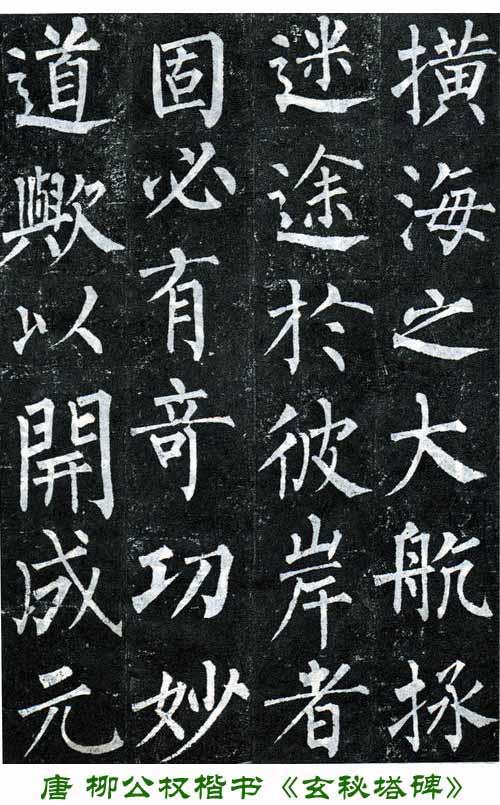 橫海之大航拯
迷途於彼岸者
固必有奇功妙
道歟以開成元
唐 柳公权楷书《玄秘塔碑》